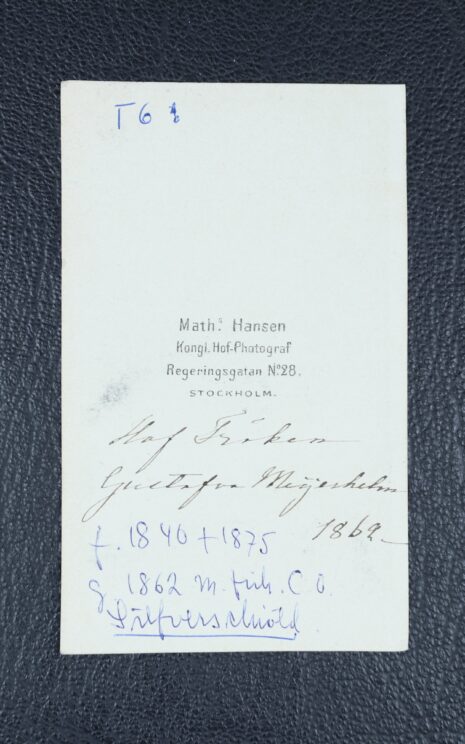 T 6
Math.s Hansen
Kongl. Hof-Photograf
Regeringsgatan No 28.
STOCKHOLM.
Hof Fröken
Gustafva
1862
f. 1840 + 1875
g 1862 m. frih. C O.
Silfverschiöld